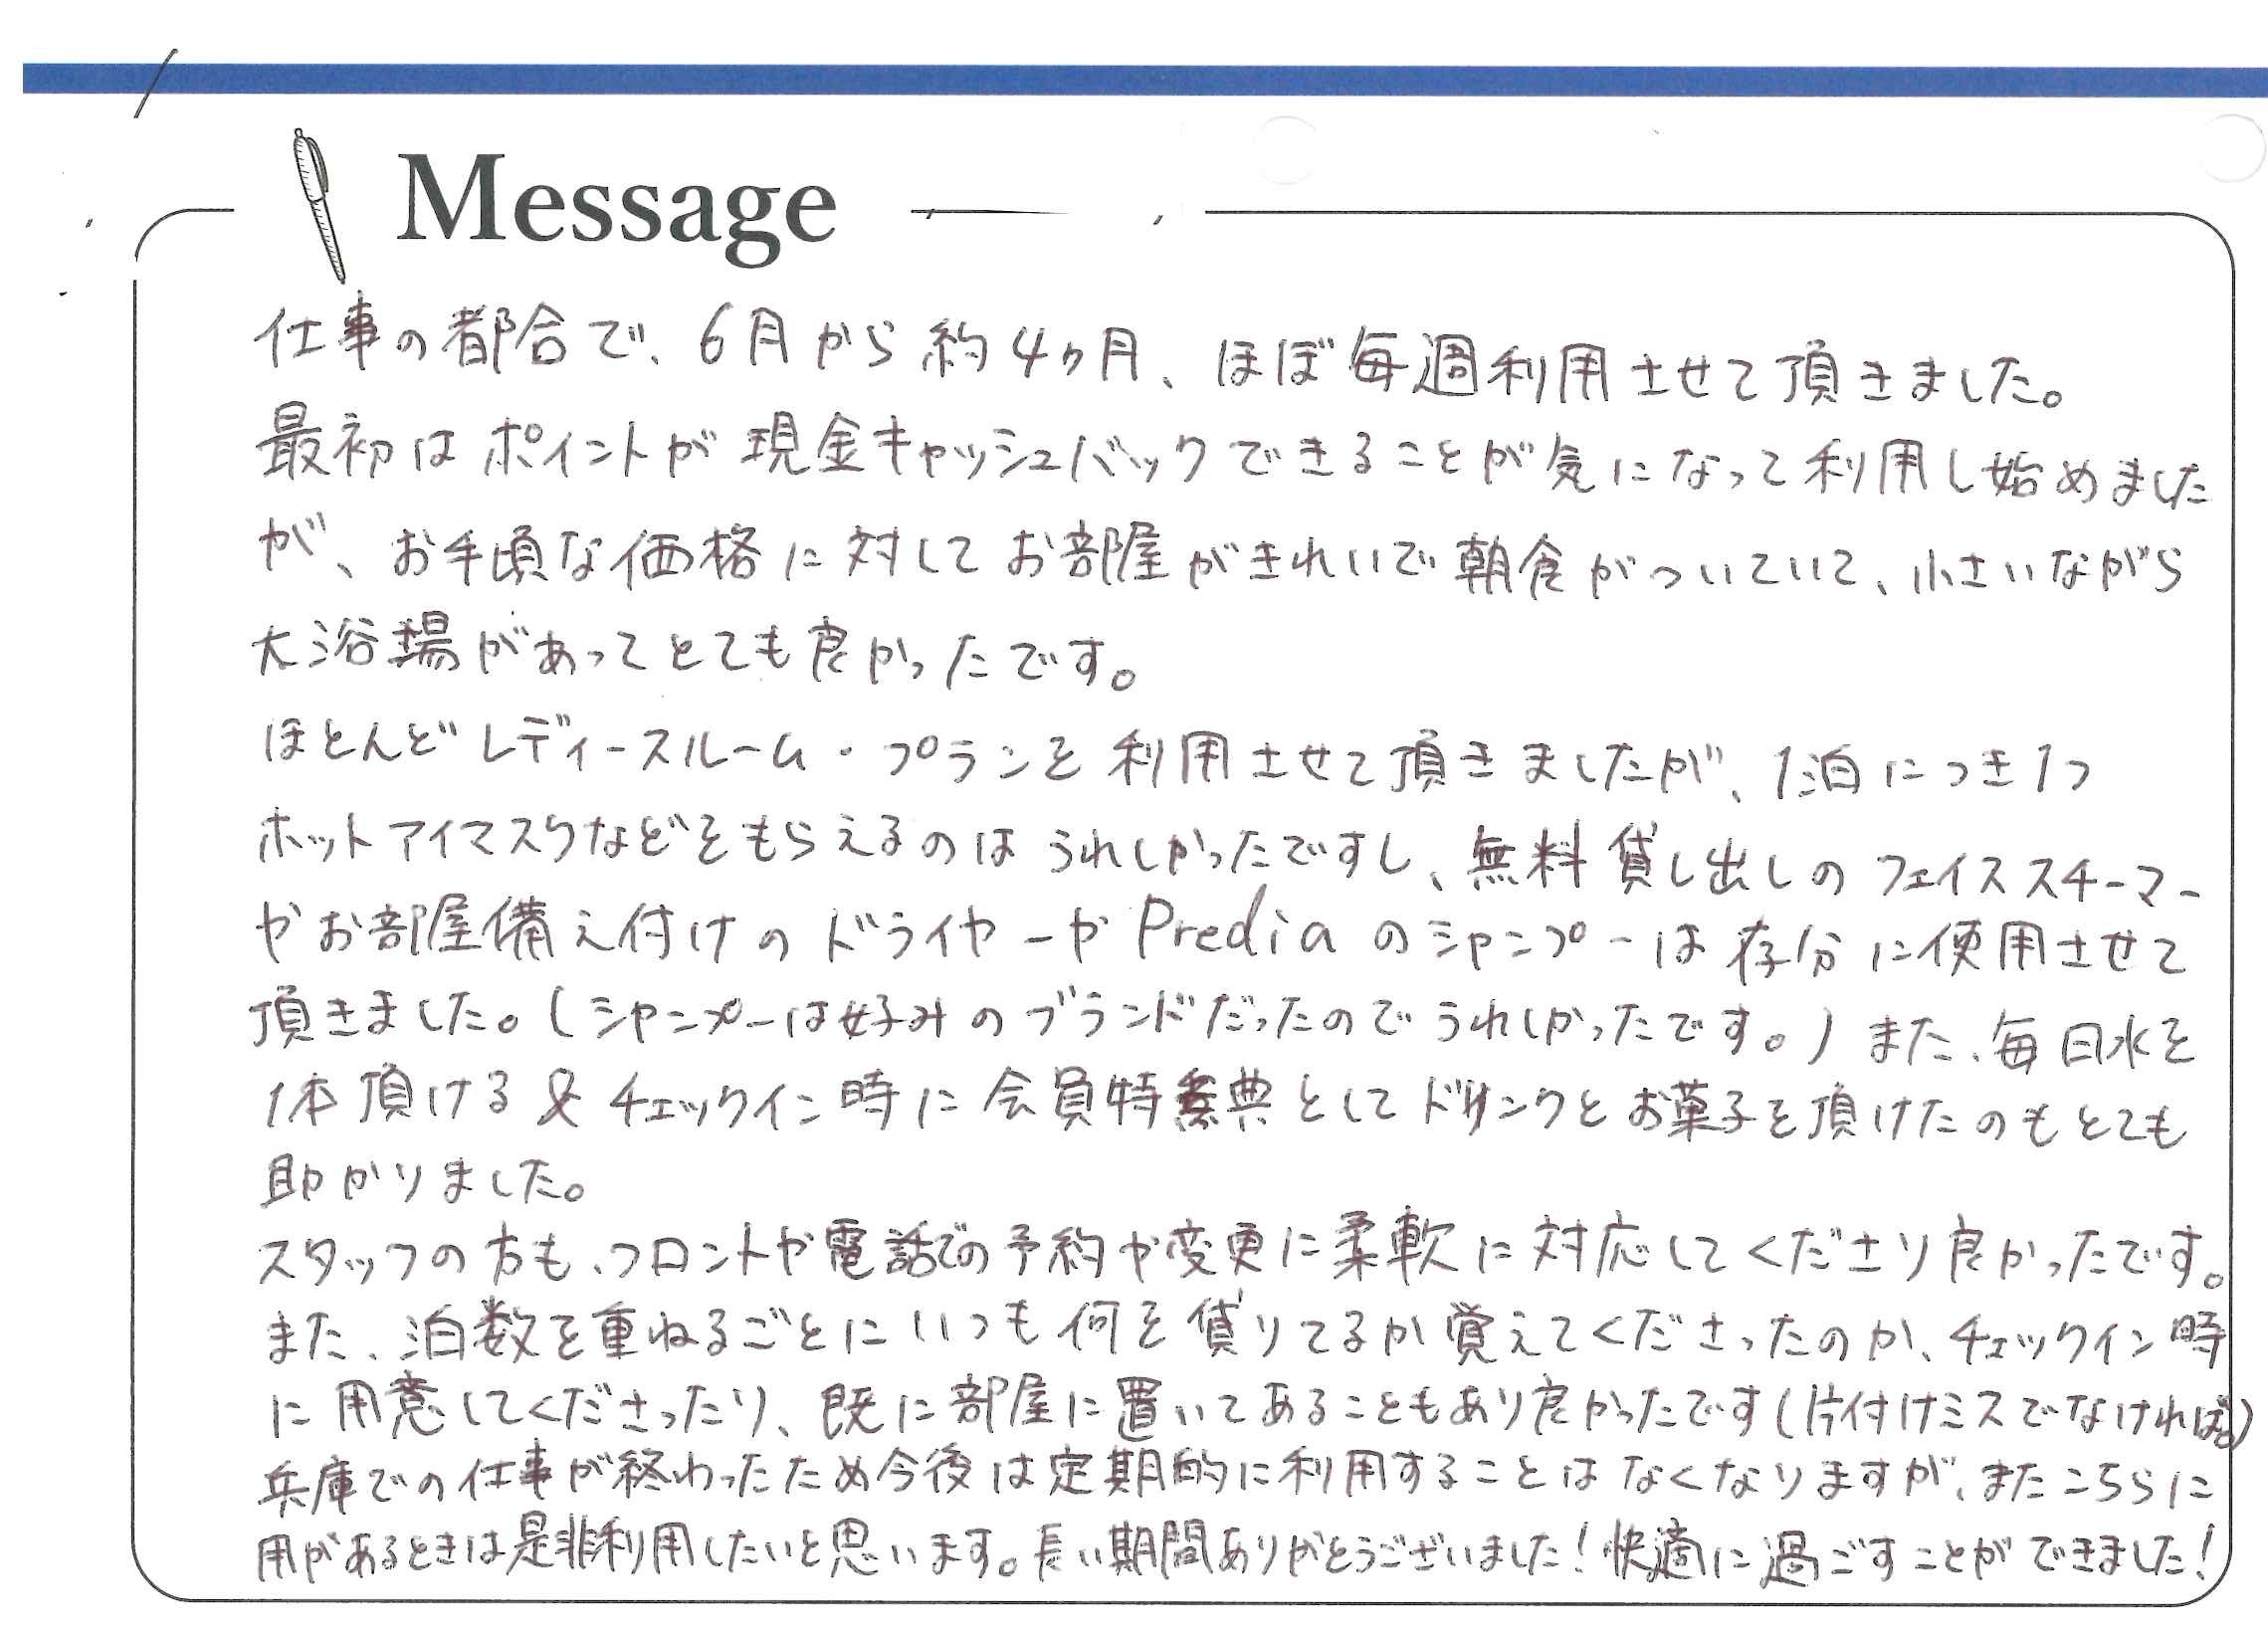 Message
仕事の都合で、6月から約4ヶ月、ほぼ毎週利用させて頂きました。
最初はポイントが現金キャッシュバックできることが気になって利用し始めました
が、お手頃な価格に対してお部屋がきれいで朝食がついていて、小さいながら
大浴場があってとても良かったです。
ほとんどレディースルーム・プランを利用させて頂きましたが、1泊につき1つ
ホットアイマスクなどをもらえるのはうれしかったですし、無料貸し出しのフェイススチーマー
やお部屋備え付けのドライヤーやPrediaのシャンプーは存分に使用させて
頂きました。(シャンプーは好みのブランドだったのでうれしかったです。)また、毎日水を
1本頂ける&チェックイン時に会員特典としてドリンクとお菓子を頂けたのもとても
助かりました。
スタッフの方も、フロントや電話での予約や変更に柔軟に対応してくださり良かったです。
また、泊数を重ねるごとにいつも何を貸りてるか覚えてくださったのか、チェックイン時
に用意してくださったり、既に部屋に置いてあることもあり良かったです(片付けミスでなければ。)
兵庫での仕事が終わったため今後は定期的に利用することはなくなりますが、またこちらに
用があるときは是非利用したいと思います。長い期間ありがとうございました!快適に過ごすことができました!